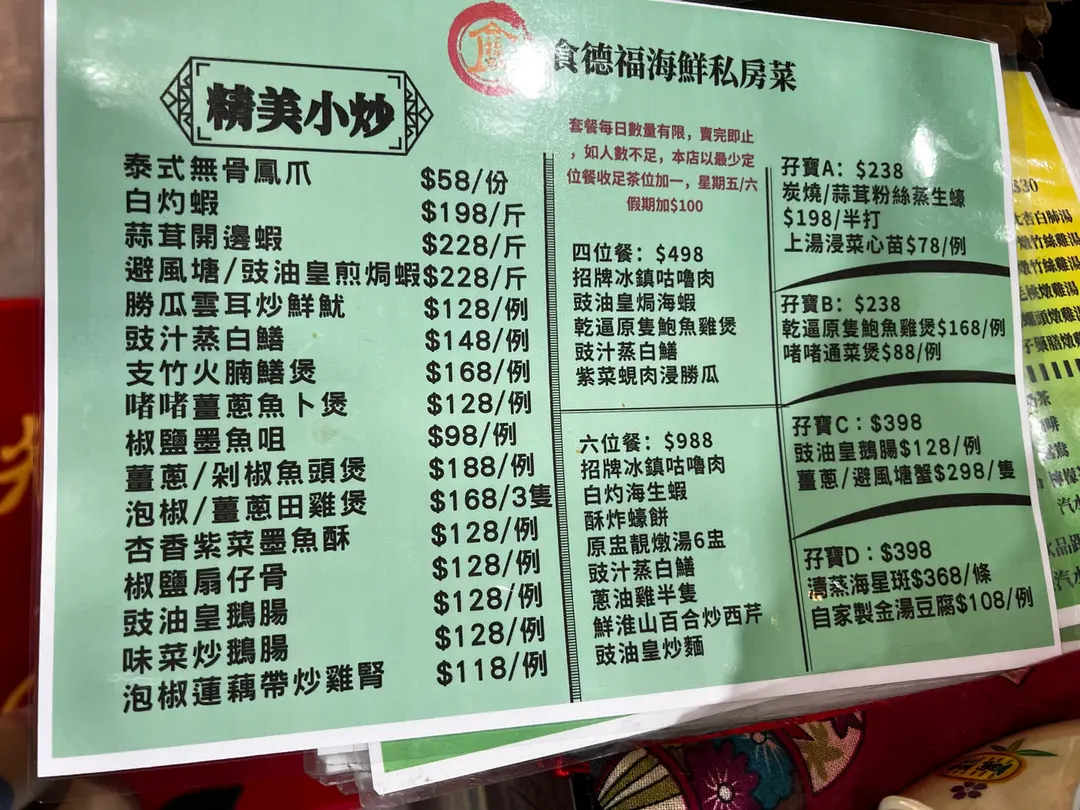 食德福海鮮私房菜
精美小炒
泰式無骨鳳爪 $58/份
白灼蝦 $198/斤
蒜茸開邊蝦 $228/斤
避風塘/豉油皇煎焗蝦$228/斤
勝瓜雲耳炒鮮魷 $128/例
豉汁蒸白鱔 $148/例
支竹火腩鱔煲 $168/例
啫啫薑蔥魚卜煲 $128/例
椒鹽墨魚咀 $98/例
薑蔥/剁椒魚頭煲 $188/例
泡椒/薑蔥田雞煲 $168/3隻
杏香紫菜墨魚酥 $128/例
椒鹽扇仔骨 $128/例
豉油皇鵝腸 $128/例
味菜炒鵝腸 $128/例
泡椒蓮藕帶炒雞腎 $118/例
套餐每日數量有限，賣完即止
，如人數不足，本店以最少定
位餐收足茶位加一，星期五/六
假期加$100
四位餐：$498
招牌冰鎮咕嚕肉
豉油皇焗海蝦
乾逼原隻鮑魚雞煲
豉汁蒸白鱔
紫菜蜆肉浸勝瓜
六位餐：$988
招牌冰鎮咕嚕肉
白灼海生蝦
酥炸蠔餅
原盅靚燉湯6盅
豉汁蒸白鱔
蔥油雞半隻
鮮淮山百合炒西芹
豉油皇炒麵
孖寶A：$238
炭燒/蒜茸粉絲蒸生蠔
$198/半打
上湯浸菜心苗$78/例
孖寶B：$238
乾逼原隻鮑魚雞煲$168/例
啫啫通菜煲$88/例
孖寶C：$398
豉油皇鵝腸$128/例
薑蔥/避風塘蟹$298/隻
孖寶D：$398
清蒸海星斑$368/條
自家製金湯豆腐$108/例
$30
杏白肺湯
燉竹絲雞湯
燉竹絲雞湯
燉雞湯
頭燉雞湯
茶
汽水